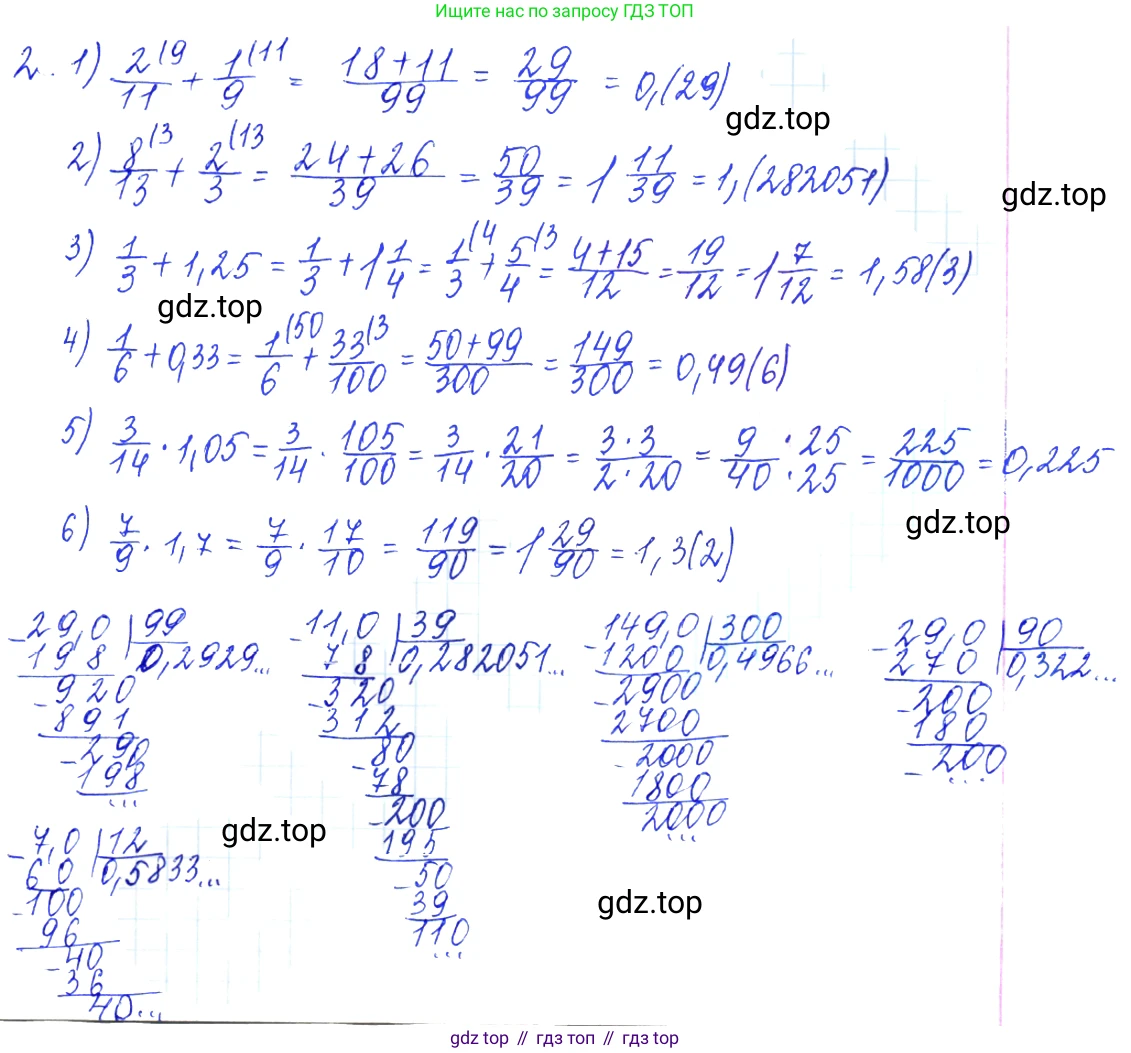 Ищите нас по запросу ГДЗ ТОП
2. 1) 2(9/11 + 1(11/9 = 18+11/99 = 29/99 = 0,(29)
gdz.top
2) 8(3/13 + 2(13/3 = 24+26/39 = 50/39 = 1 11/39 = 1,(282051)
gdz.top
3) 1/3 + 1,25 = 1/3 + 1 1/4 = 1(4/3 + 5(3/4 = 4+15/12 = 19/12 = 1 7/12 = 1,58(3)
gdz.top
4) 1/6 + 0,33 = 1(50/6 + 33(3/100 = 50+99/300 = 149/300 = 0,49(6)
5) 3/14 · 1,05 = 3/14 · 105/100 = 3/14 · 21/20 = 3·3/2·20 = 9·25/40·25 = 225/1000 = 0,225
gdz.top
6) 7/9 · 1,7 = 7/9 · 17/10 = 119/90 = 1 29/90 = 1,3(2)
29,0 | 99
- 198 | 0,2929...
920
- 891
290
- 198
...
11,0 | 39
- 78 | 0,282051...
320
- 312
80
- 78
200
- 195
50
- 39
110
...
149,0 | 300
- 1200 | 0,4966...
2900
- 2700
2000
- 1800
2000
...
29,0 | 90
- 270 | 0,322...
200
- 180
- 200
...
gdz.top
7,0 | 12
- 60 | 0,5833...
100
- 96
40
- 36
40...
gdz.top
gdz top // гдз топ // гдз top